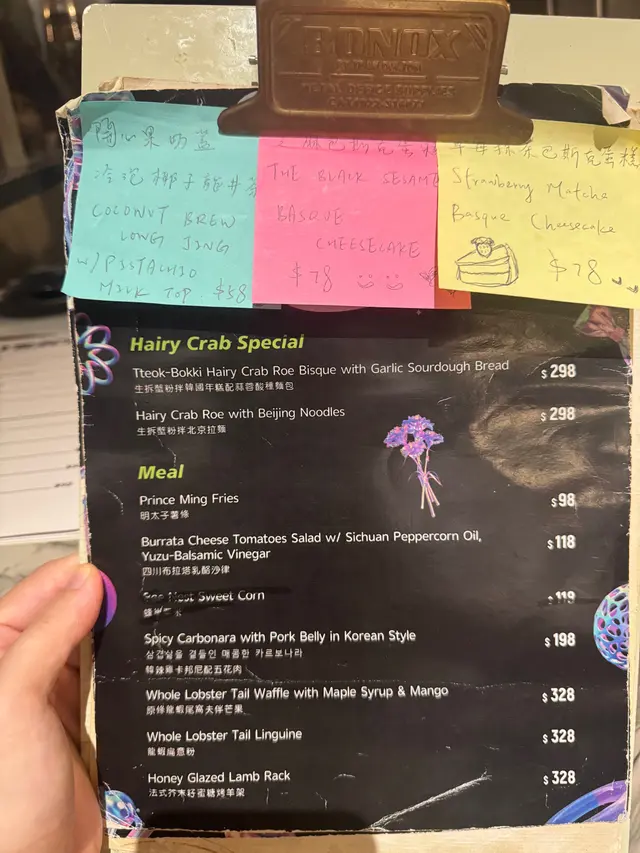 BONOX
開心果奶蓋
冷泡椰子龍井茶
COCONUT BREW
LONG JING
W/ PISTACHIO
MILK TOP. $58
THE BLACK SESAME
BASQUE
CHEESECAKE
$78
草莓抹茶巴斯克蛋糕
Strawberry Matcha
Basque Cheesecake
$78
Hairy Crab Special
Tteok-Bokki Hairy Crab Roe Bisque with Garlic Sourdough Bread $298
生拆蟹粉拌韓國年糕配蒜蓉酸種麵包
Hairy Crab Roe with Beijing Noodles $298
生拆蟹粉拌北京拉麵
Meal
Prince Ming Fries $98
明太子薯條
Burrata Cheese Tomatoes Salad w/ Sichuan Peppercorn Oil,
Yuzu-Balsamic Vinegar $118
四川布拉塔乳酪沙律
Sweet Corn 119
Spicy Carbonara with Pork Belly in Korean Style $198
삼겹살을 곁들인 매콤한 카르보나라
韓辣雞卡邦尼配五花肉
Whole Lobster Tail Waffle with Maple Syrup & Mango $328
原條龍蝦尾窩夫伴芒果
Whole Lobster Tail Linguine $328
龍蝦扁意粉
Honey Glazed Lamb Rack $328
法式芥末籽蜜糖烤羊架